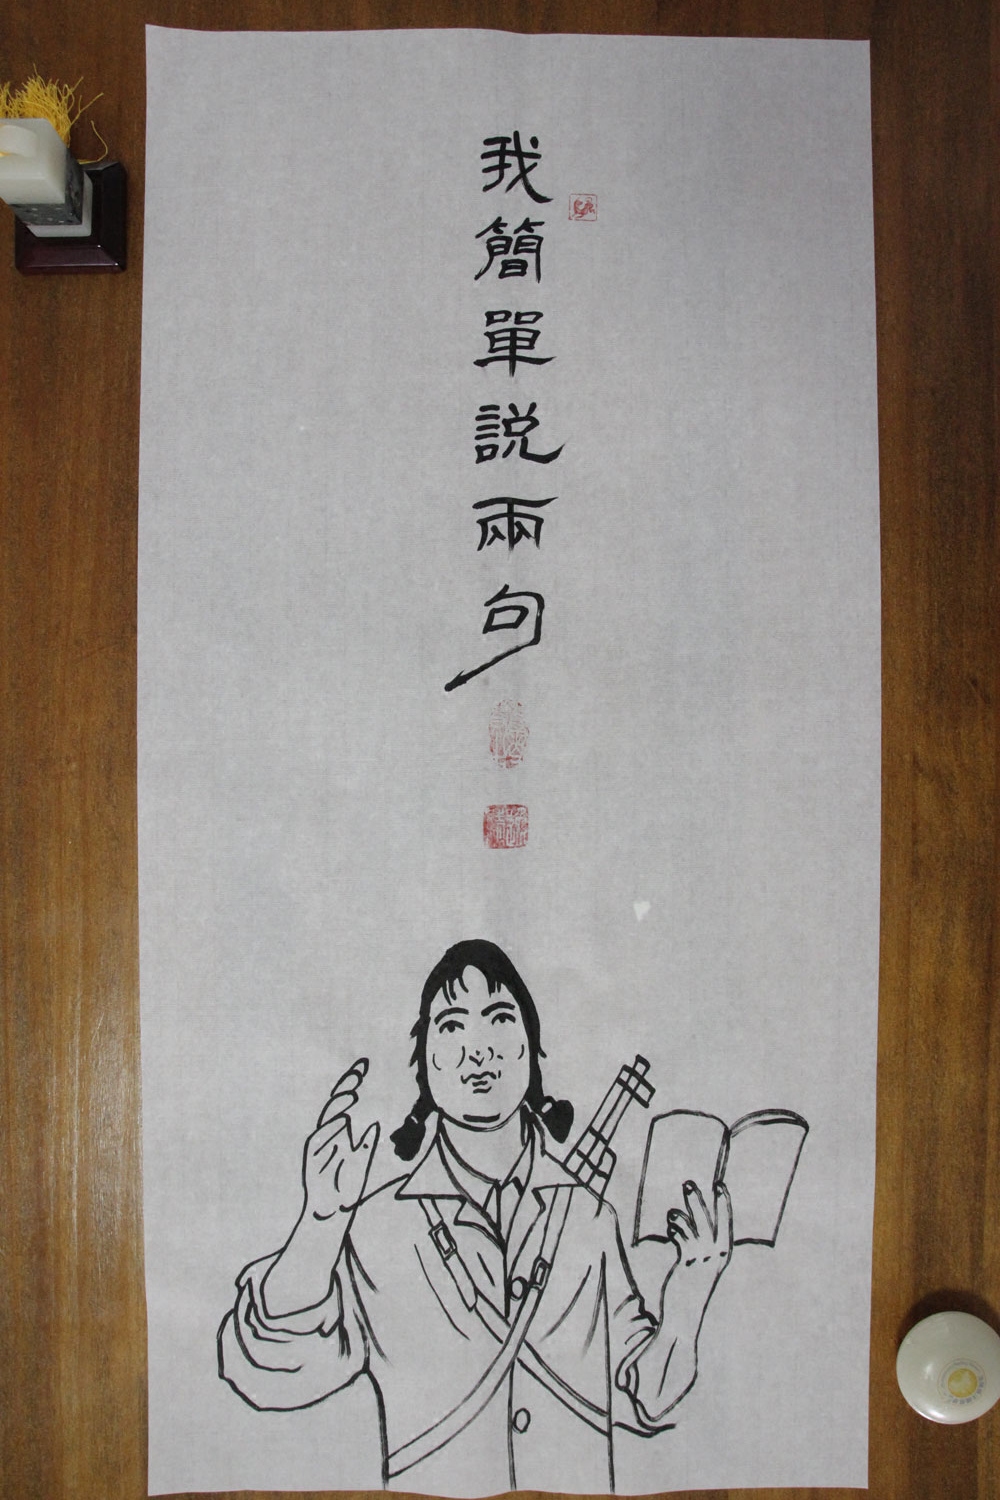 我簡單説兩句